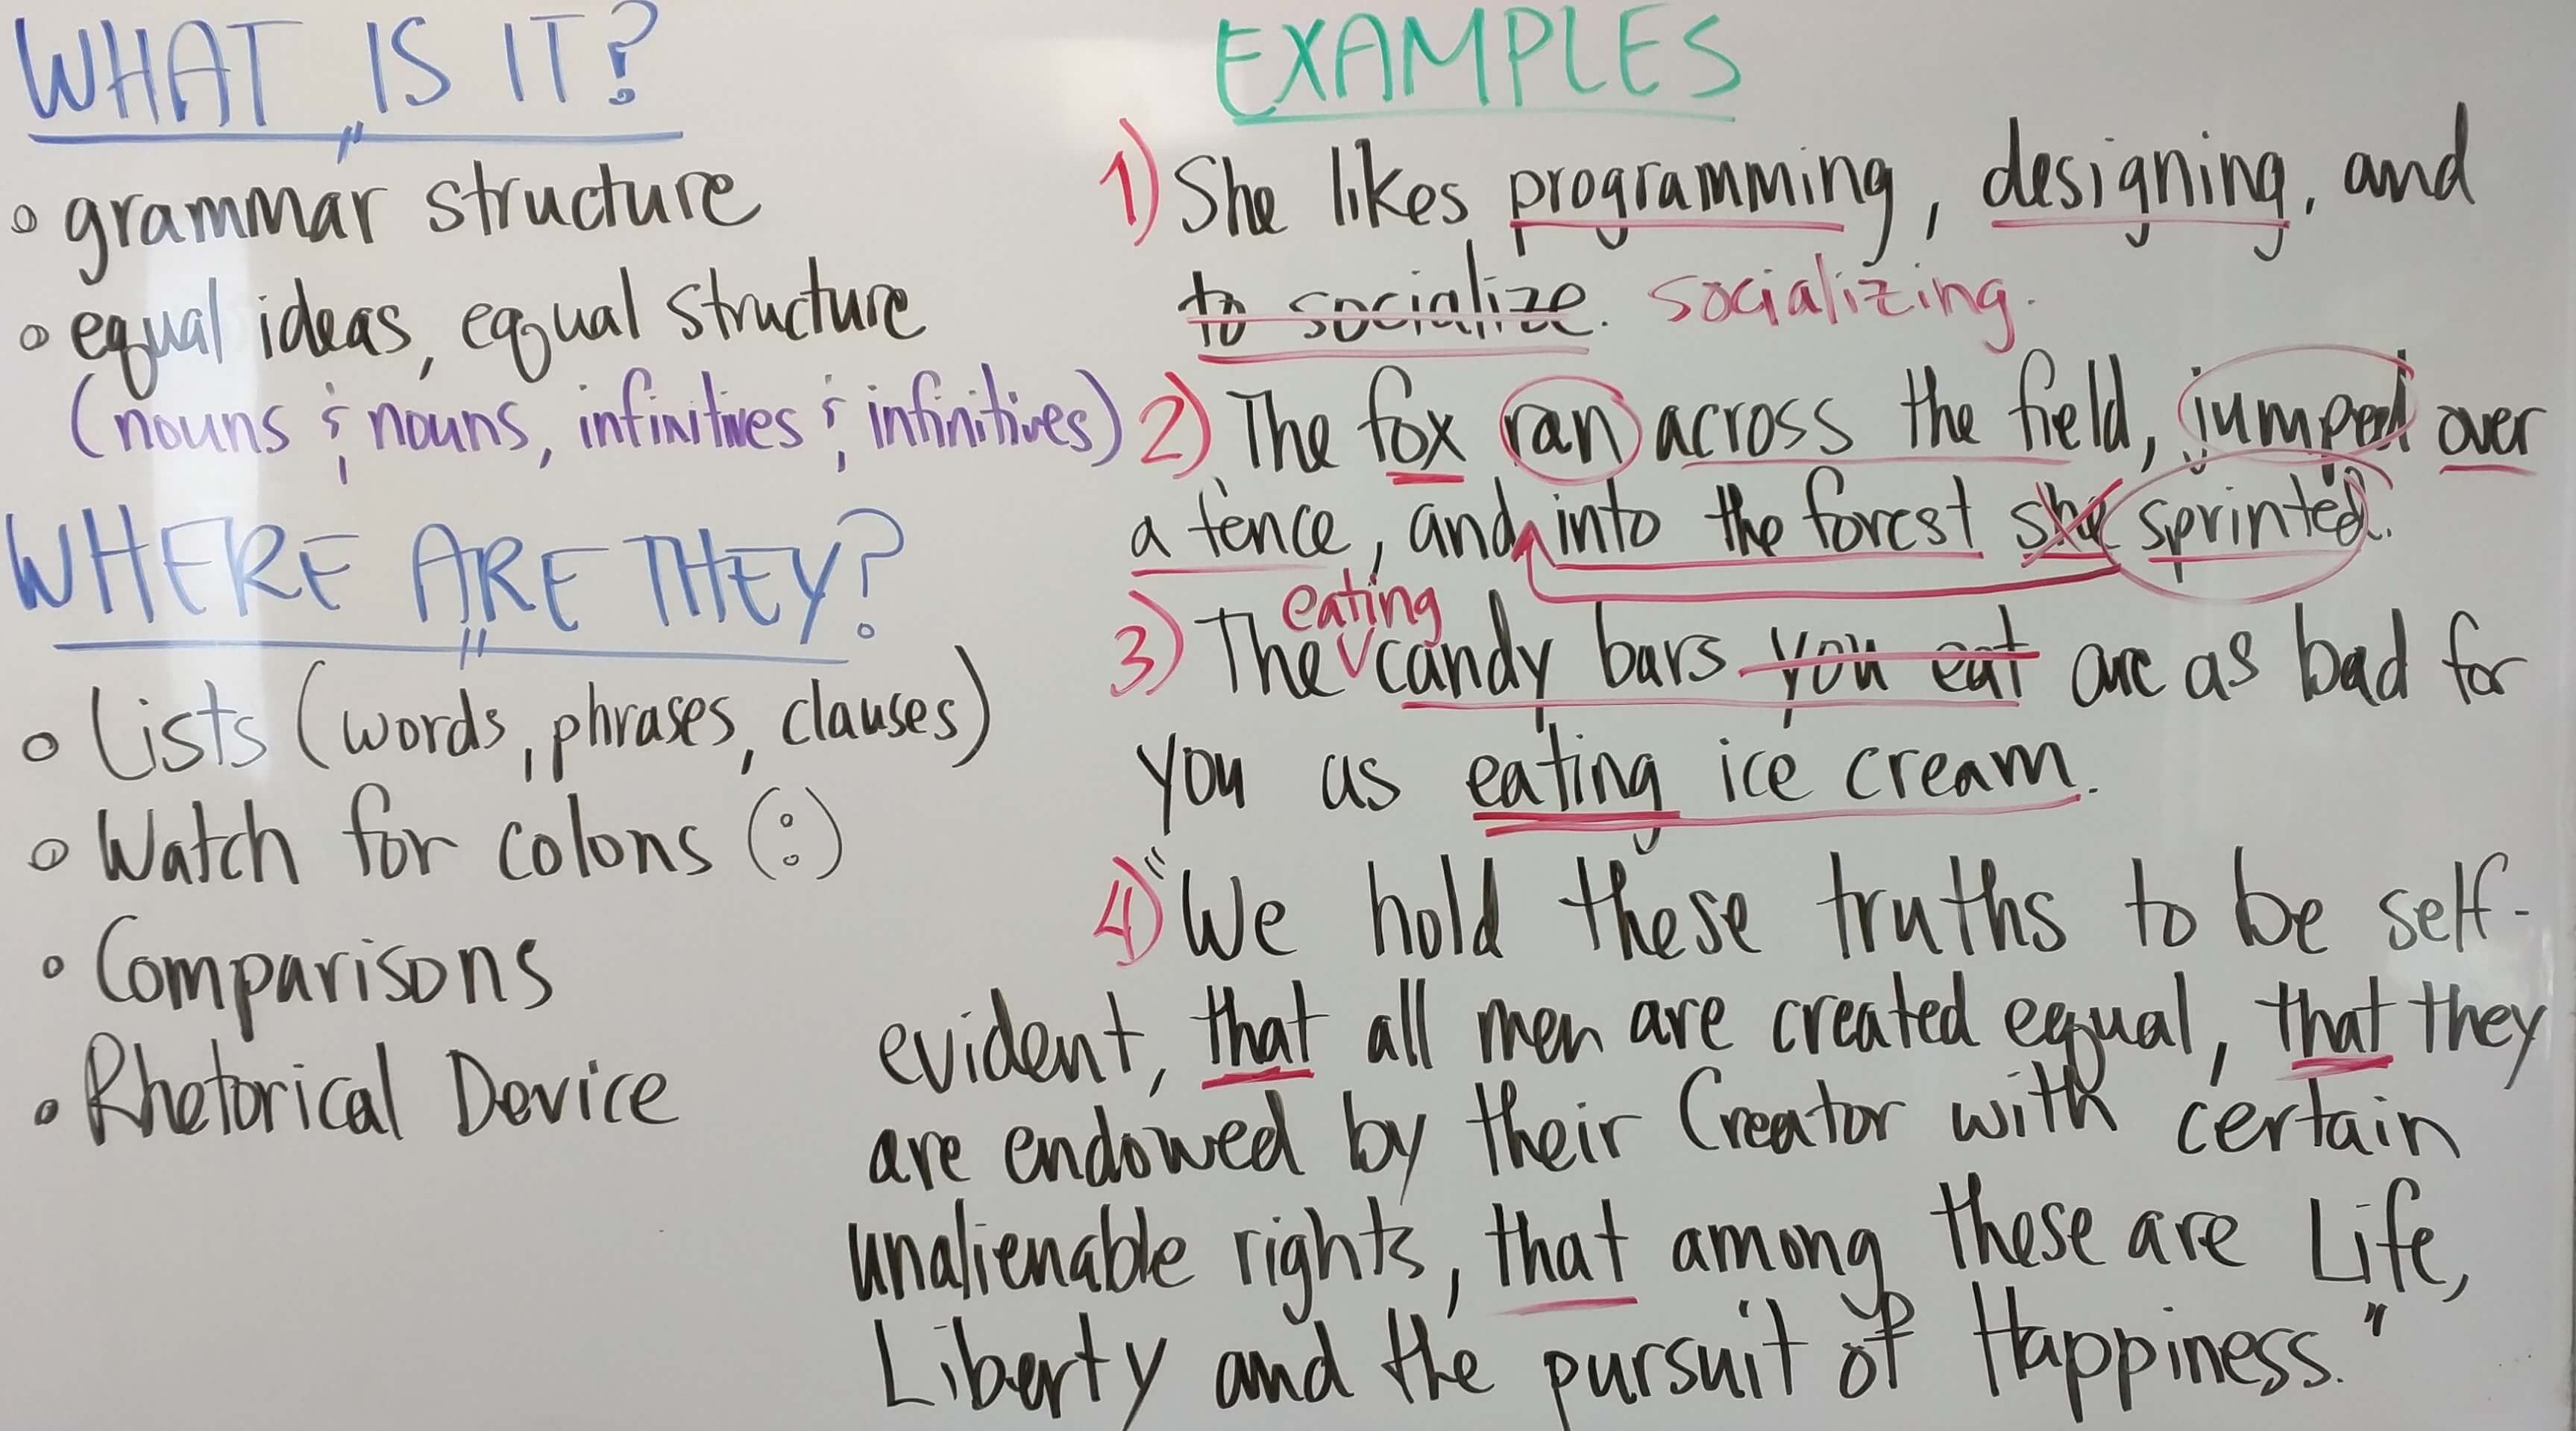 WHAT IS IT?
◦ grammar structure
◦ equal ideas, equal structure
(nouns & nouns, infinitives & infinitives)
WHERE ARE THEY?
◦ Lists (words, phrases, clauses)
◦ Watch for colons (:)
◦ Comparisons
◦ Rhetorical Device
EXAMPLES
1) She likes programming, designing, and
to socialize. socializing.
2) The fox ran across the field, jumped over
a fence, and into the forest she sprinted.
eating
3) The candy bars you eat are as bad for
you as eating ice cream.
4) "We hold these truths to be self-
evident, that all men are created equal, that they
are endowed by their Creator with certain
unalienable rights, that among these are Life,
Liberty and the pursuit of Happiness."